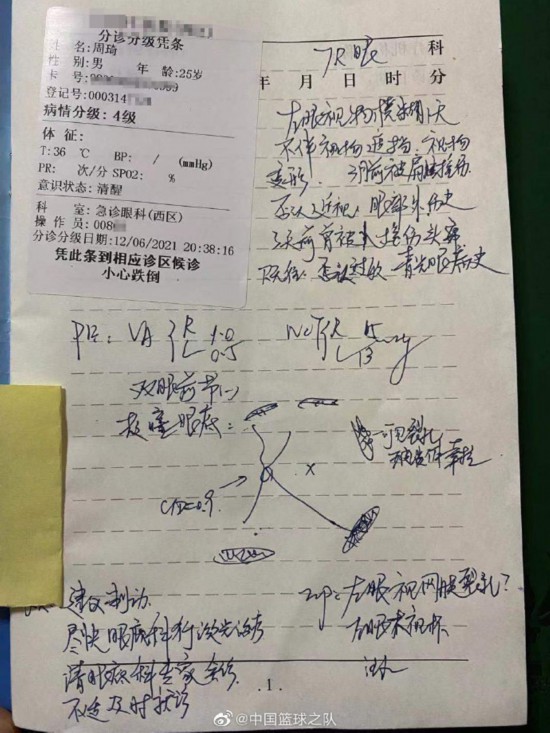 分诊分级凭条
姓 名:周琦
性 别:男 年 龄:25岁
卡 号:
登记号:000314
病情分级: 4级
体 征:
T:36 ℃ BP: / (mmHg)
PR: 次/分 SPO2: %
意识状态: 清醒
科 室: 急诊眼科(西区)
操 作 员:008
分诊分级日期:12/06/2021 20:38:16
凭此条到相应诊区候诊
小心跌倒
眼 科
年 月 日 时 分
左眼视物模糊1天
不伴视物遮挡、视物
变形。
否认近视、眼部外伤史
3天前曾被人撞伤头部
否认过敏 青光眼病史
PE: VA R 1.0
L 0.5
NCT R 15 mmHg
L 13
双眼前节(-)
散瞳眼底:
可见裂孔
玻璃体牵拉
C/D=0.9
建议制动
尽快眼底病科行激光治疗
请眼底病科专家会诊
不适及时就诊
Imp: 左眼视网膜裂孔?
左眼大视杯
.1.
@中国篮球之队